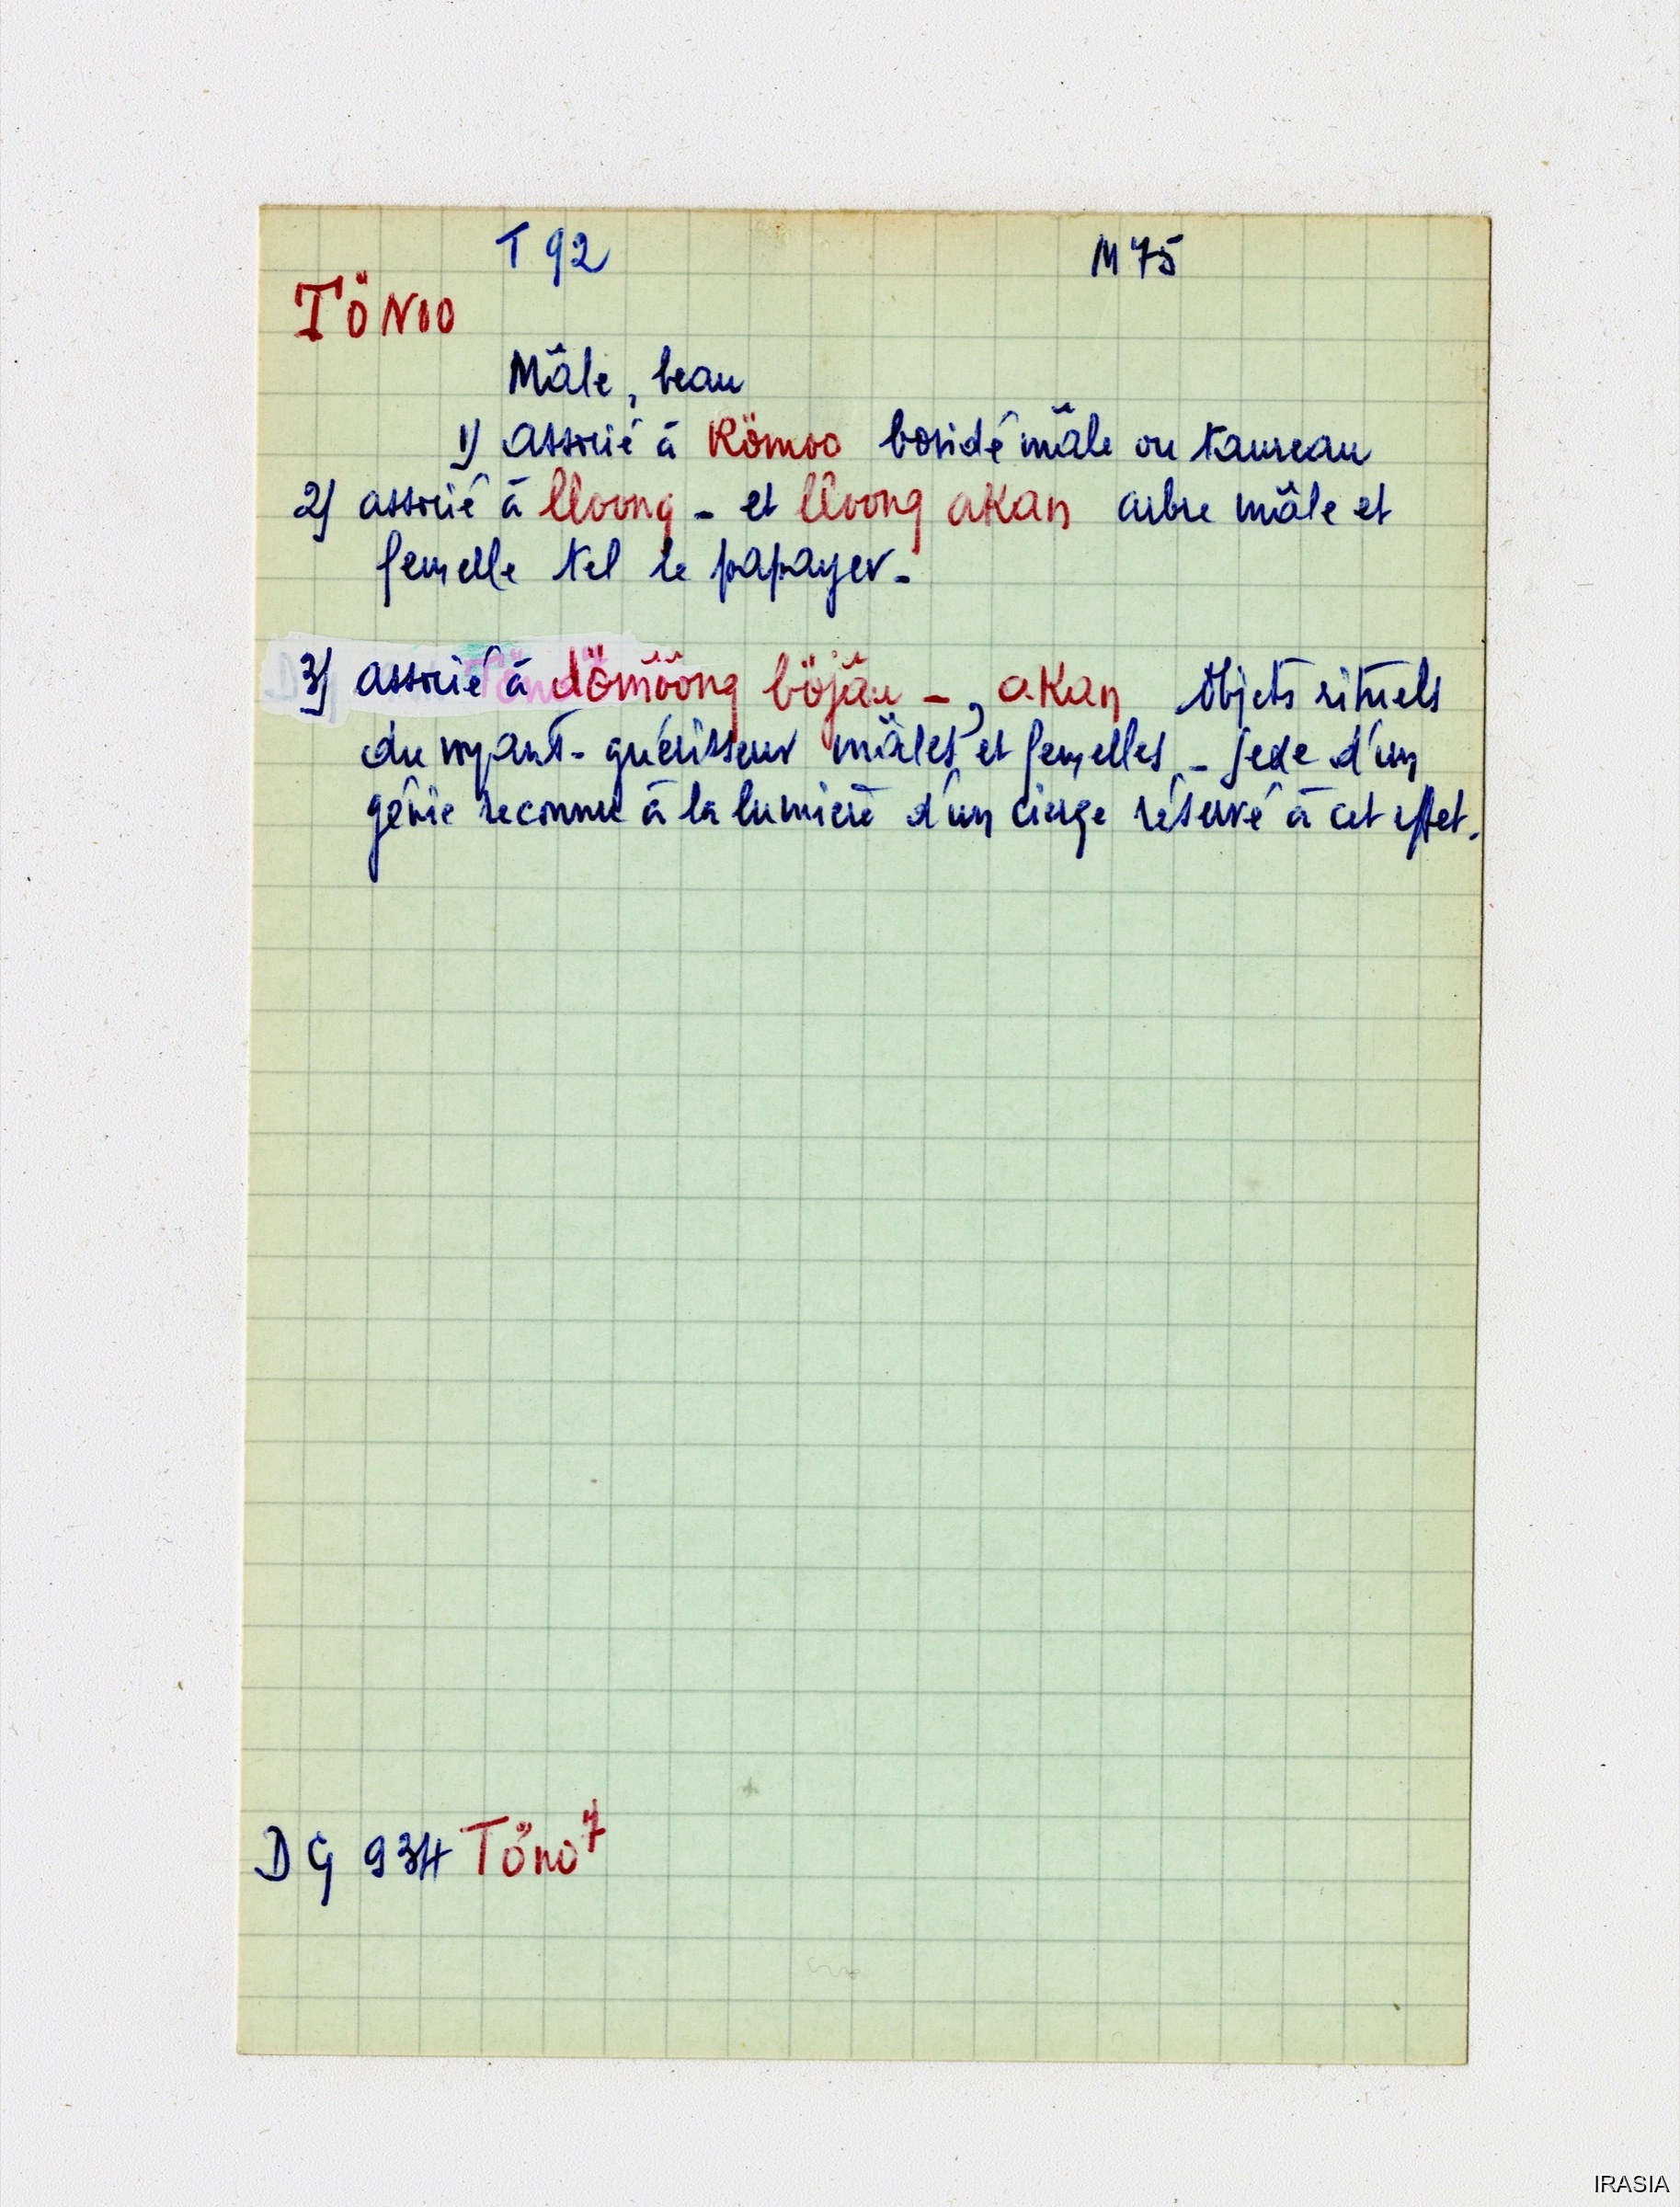 T 92 M 75
TÖNOO
Mâle, beau
1) associé à Römoo bovidé mâle ou taureau
2) associé à lloong - et lloong aKan arbre mâle et
femelle tel le papayer -
3) associé à dömöông böjâu -, aKan objets rituels
du voyant-guérisseur mâles et femelles - d'un
génie reconnu à la lumière d'un cierge réservé à cet effet.
DG 934 Töno7
IRASIA